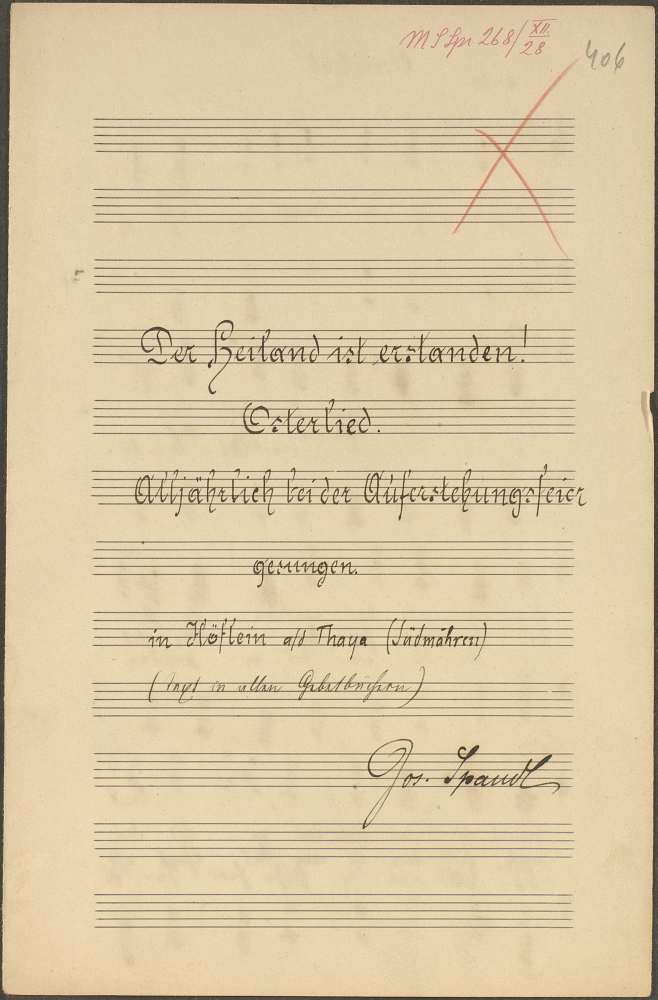 268/XII.
28
406
Der Heiland ist erstanden!
Osterlied.
Alljährlich bei der Auferstehungsfeier
gesungen.
in Höflein a/d Thaya (Südmähren)
(Text in allen Gebetbüchern)
Jos. Spandl